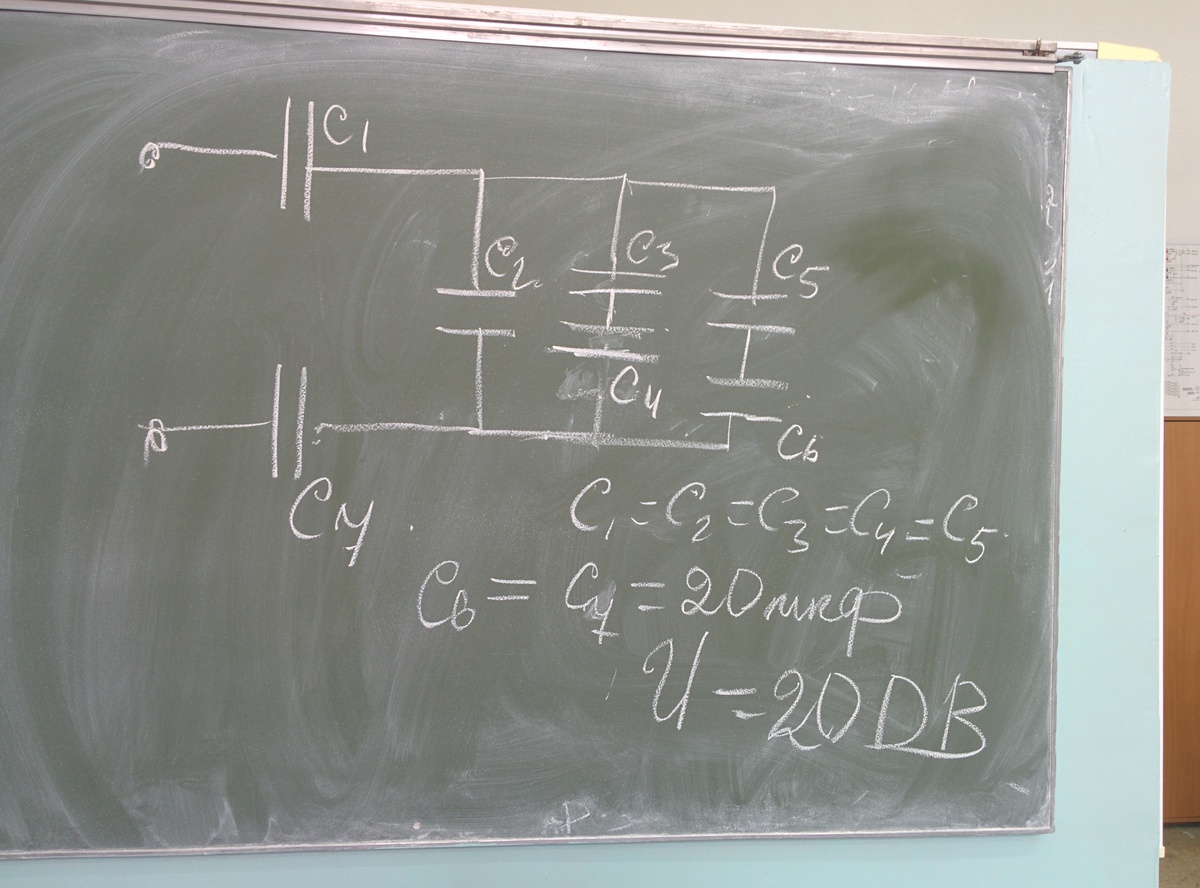 C₁
C₂
C₃
C₅
C₄
C₆
C₇
C₁=C₂=C₃=C₄=C₅
C₆=C₇=20мкф
U=200В